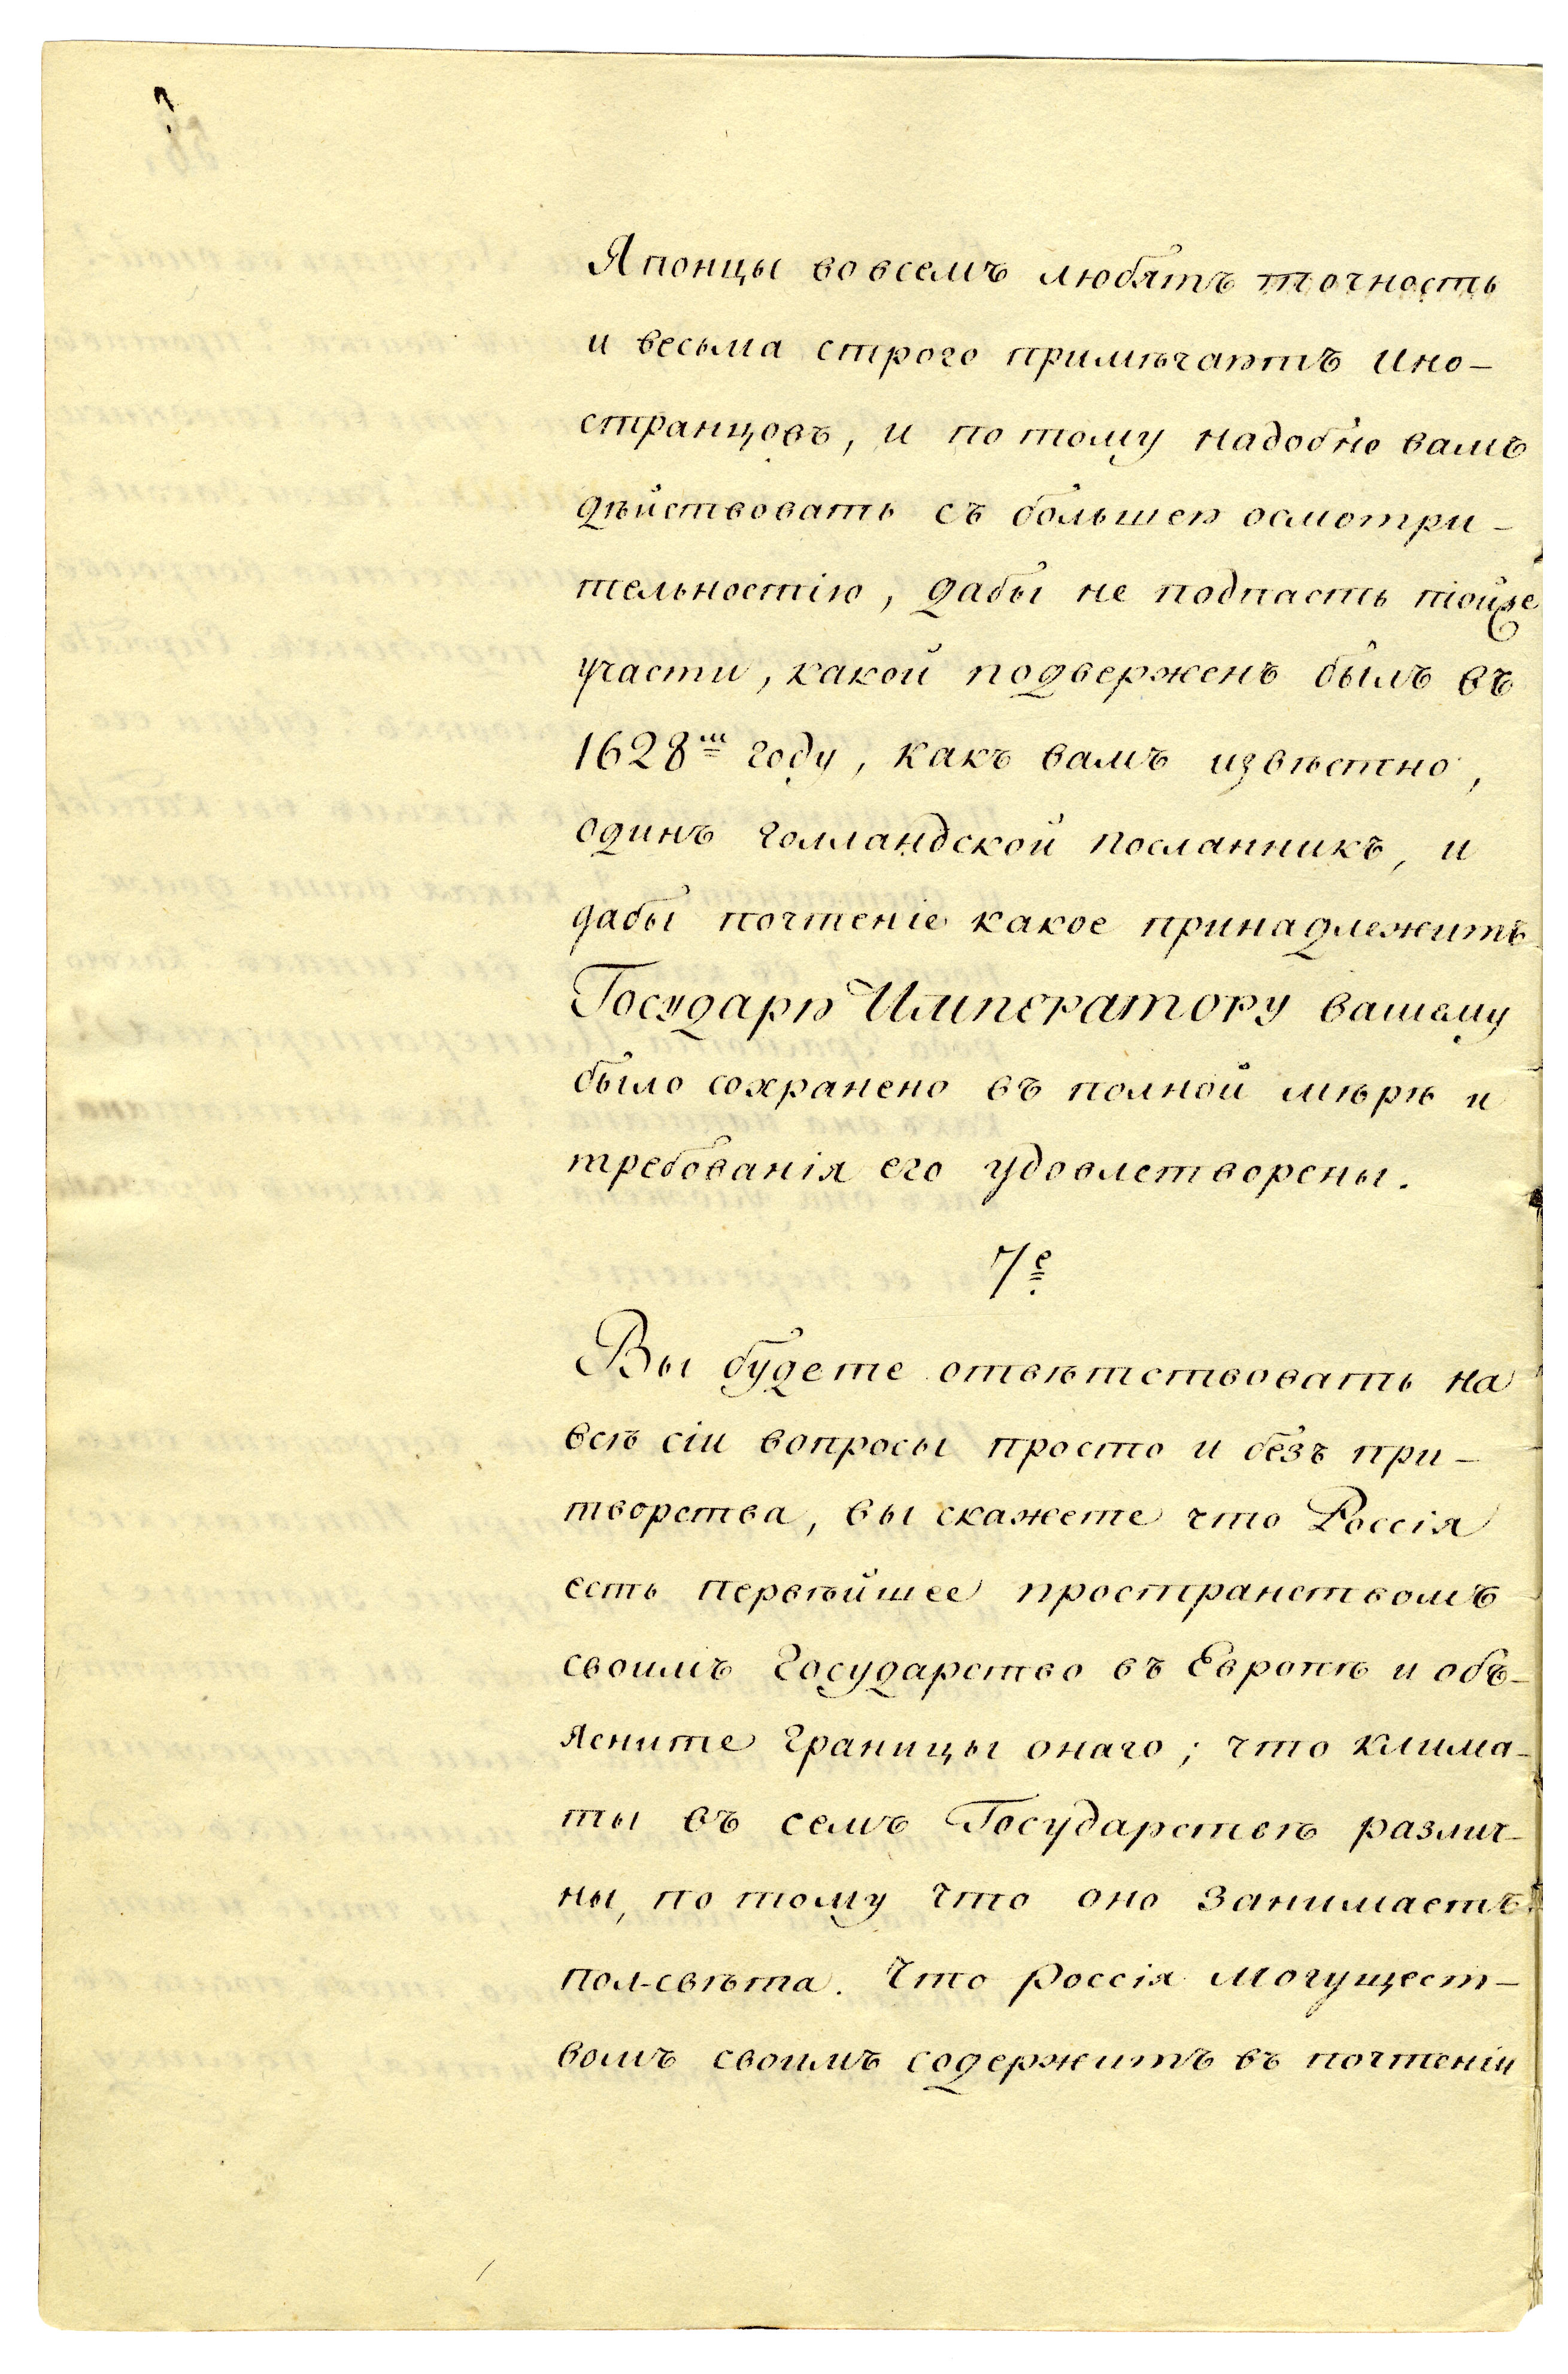 Японцы во всемъ любятъ точность
и весьма строго примѣчаютъ ино-
странцовъ, и по тому надобно вамъ
дѣйствовать съ большею осмотри-
тельностію, дабы не подпасть тойже
участи, какой подверженъ былъ въ
1628ᵐ году, какъ вамъ извѣстно,
одинъ голландской посланникъ, и
дабы почтеніе какое принадлежитъ
Государю Императору вашему
было сохранено въ полной мѣрѣ и
требованія его удовлетворены.
7е
Вы будете отвѣтствовать на
всѣ сіи вопросы просто и безъ при-
творства, вы скажете что Россія
есть первѣйшее пространствомъ
своимъ государство въ Европѣ и объ-
ясните границы онаго; что клима-
ты въ семъ Государствѣ различ-
ны, по тому что оно занимаетъ
пол-свѣта. Что Россія могущест-
вомъ своимъ содержитъ въ почтеніи